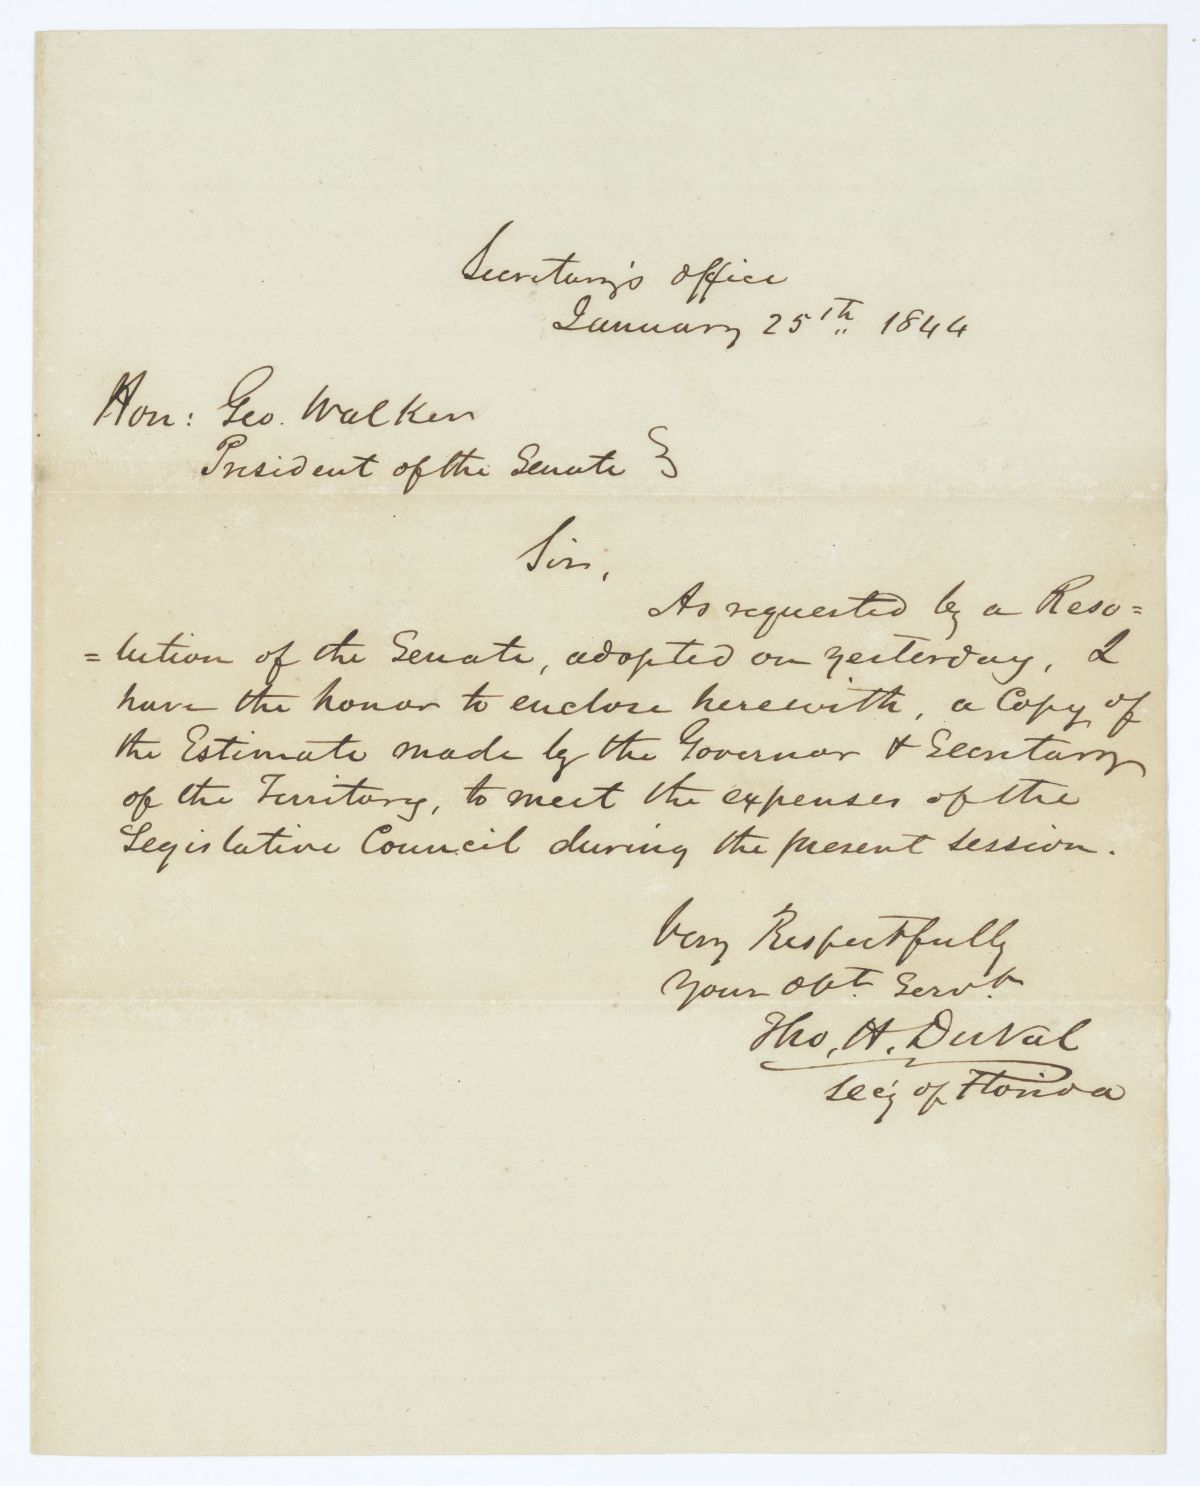 Secretary's office
January 25th 1844
Hon: Geo. Walker
President of the Senate
Sir,
As requested by a Reso=
=lution of the Senate, adopted on yesterday, I
have the honor to enclose herewith, a Copy of
the Estimate made by the Governor & Secretary
of the Territory, to meet the expenses of the
Legislative Council during the present session.
Very Respectfully
Your Obt. Servt.
Tho. H. DuVal
Sec'y of Florida